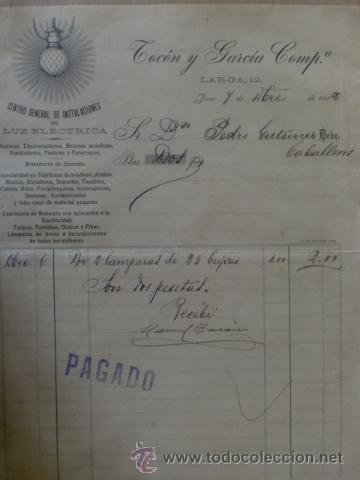 Tocón y García Comp.ª
LARGA, 12.
CENTRO GENERAL DE INSTALACIONES
DE
LUZ ELÉCTRICA
Jerez 7 de Dbre. de
Dinamos, Electromotores, Bocinas acústicas,
Ventiladores, Timbres y Pararrayos.
Avisadores de Incendio.
Especialidad en Teléfonos domésticos, Arañas,
Brazos, Aisladores, Soportes, Flexibles,
Cables, Hilos, Portalámparas, Interruptores,
Resortes, Cortacircuitos
y toda clase de material pequeño.
Cristalería de Bohemia con aplicación á la
Electricidad.
Tulipas, Fantasías, Globos y Piñas.
Lámparas de Arcos é Incandescentes
de todos los sistemas
Sr. Dn. Pedro Gutierrez Debe
Caballero
Ptas. Dos
Dbre. 6 Por 2 lamparas de 25 bujias 1.00 2.00
Son dos pesetas.
Recibí
Manuel
PAGADO
todocoleccion
www.todocoleccion.net